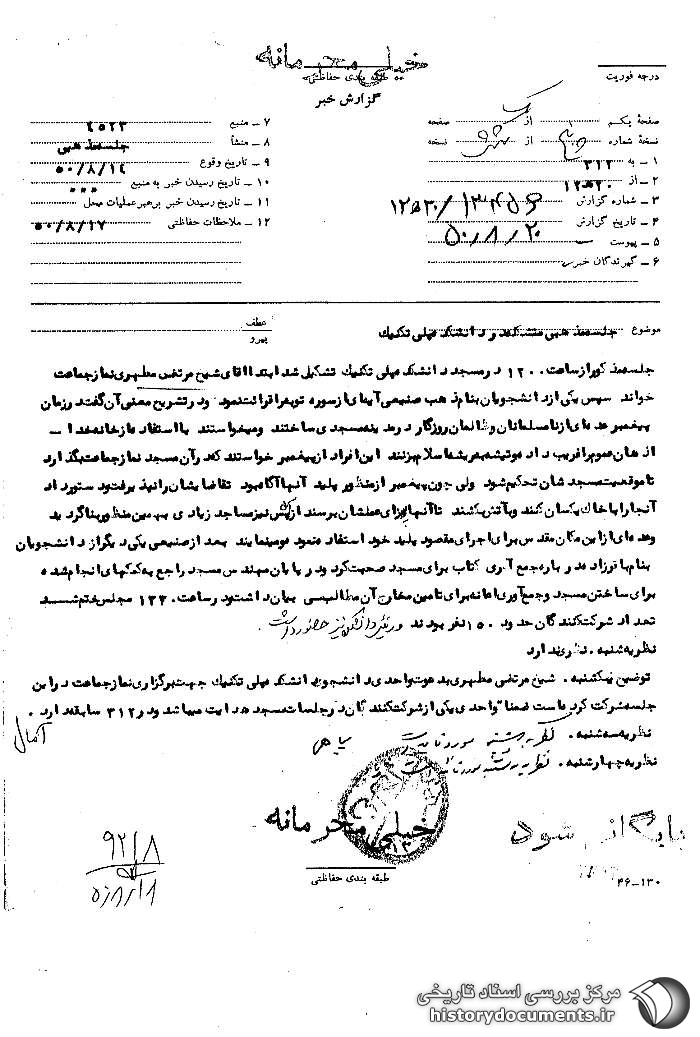 خیلی محرمانه
طبقه بندی حفاظتی
گزارش خبر
درجه فوریت
صفحهٔ یکم از صفحه
نسخهٔ شماره از نسخه
۱ ـ به ۳۱۲
۲ ـ از ۱۲ﻫ۲۰
۳ ـ شماره گزارش ۱۲ﻫ۲۰/۱۳۴۵۶
۴ ـ تاریخ گزارش ۵۰/۸/۲۰
۵ ـ پیوست
۶ ـ گیرندگان خبر
۷ ـ منبع ۶۵۲۳
۸ ـ منشأ جلسه مذهبی
۹ ـ تاریخ وقوع ۵۰/۸/۱۶
۱۰ ـ تاریخ رسیدن خبر به منبع
۱۱ ـ تاریخ رسیدن خبر برهبر عملیات محل
۱۲ ـ ملاحظات حفاظتی ۵۰/۸/۱۷
موضوع جلسه مذهبی متشکله در دانشکده پلی تکنیک
عطف
پیرو
جلسه مذکور از ساعت ۱۲۰۰ در مسجد دانشکده پلی تکنیک تشکیل شد ابتدا آقای شیخ مرتضی مطهری نماز جماعت
خواند سپس یکی از دانشجویان بنام مذهب صنیعی آیه‌ای از سوره توبه قرائت نمود و در تشریح معنی آن گفت در زمان
پیغمبر عده‌ای از نامسلمانان و ظالمان روزگار در مدینه مسجدی ساختند و میخواستند با استفاده از خانه خدا ـ
اذهان عموم را فریب داده و تیشه به ریشه اسلام بزنند این افراد از پیغمبر خواستند که در آن مسجد نماز جماعت بگذارد
تا موقعیت مسجدشان تحکیم شود ولی چون پیغمبر از منظور پلید آنها آگاه بود تقاضایشان را نپذیرفت و دستور داد
آنجا را با خاک یکسان کنند و به آتش بکشند تا آنها بسزای عملشان برسند از این پیش نیز مساجد زیادی بهمین منظور بنا گردیده
و عده‌ای از این مکان مقدس برای اجرای مقصود پلید خود استفاده نموده و مینمایند بعد از صنیعی یکی دیگر از دانشجویان
بنام باقرزاده در باره جمع آوری کتاب برای مسجد صحبت کرد و در پایان مهندس مسجد راجع به کمکهای انجام شده
برای ساختن مسجد و جمع‌آوری اعانه برای تامین مخارج آن مطالبی بیان داشت و در ساعت ۱۳۳۰ مجلس ختم شد
تعداد شرکت کنندگان حدود ۱۵۰ نفر بودند و رئیس دانشکده نیز حضور داشت .
نظریه شنبه . نظری ندارد
توضیح یکشنبه . شیخ مرتضی مطهری به دعوت واحدی دانشجوی دانشکده پلی تکنیک جهت برگزاری نماز جماعت در این
جلسه شرکت کرده است ضمنا" واحدی یکی از شرکت کنندگان در جلسات مسجد هدایت میباشد و در ۳۱۲ سابقه دارد .
نظریه سه‌شنبه . نظریه یکشنبه مورد تایید است
نظریه چهارشنبه . نظریه سه‌شنبه مورد تایید است
خیلی محرمانه
طبقه بندی حفاظتی
بایگانی شود
۹۲/۸
۴۶-۱۳۰
مرکز بررسی اسناد تاریخی
historydocuments.ir